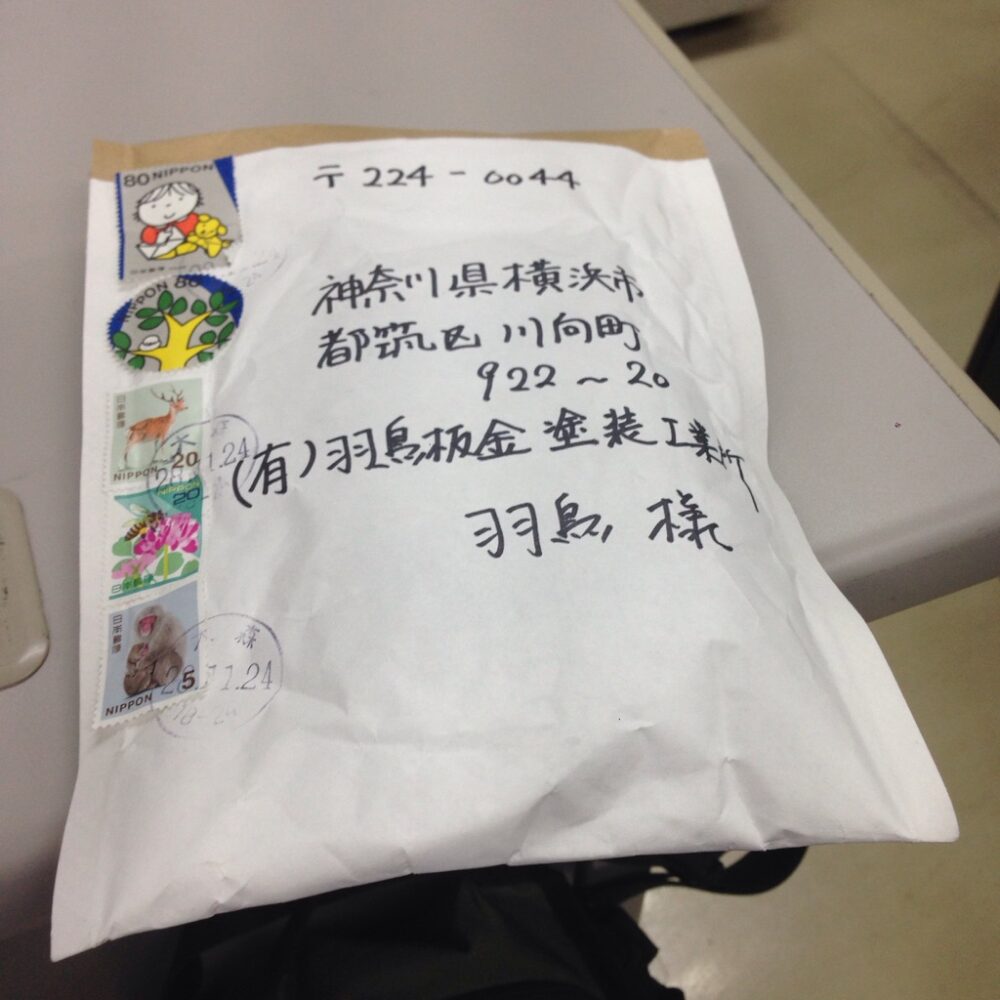 〒224-0044
神奈川県横浜市
都筑区川向町
922~20
(有)羽鳥板金塗装工業所
羽鳥 様
80 NIPPON
日本郵便
NIPPON 80
日本郵便
NIPPON 20
NIPPON
20
日本郵便
日本郵便
NIPPON 5
28.11.24
28.11.24